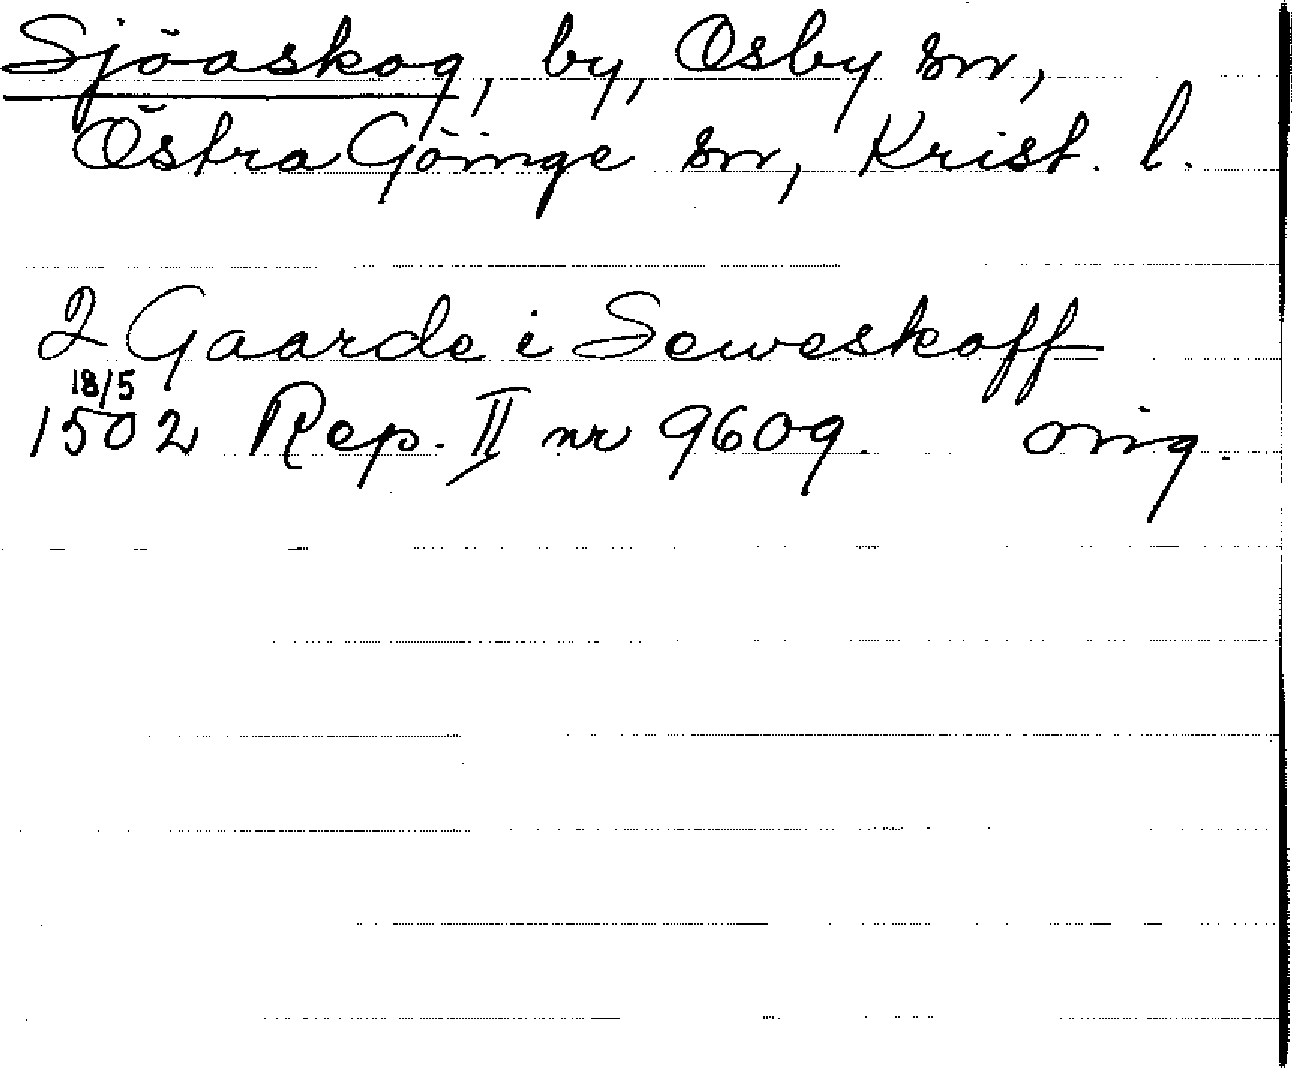 Sjöaskog, by, Osby sn,
Östra Göinge sn, Krist. l.
2 Gaarde i Seweskoff
18/5
1502 Rep. II nr 9609. orig.